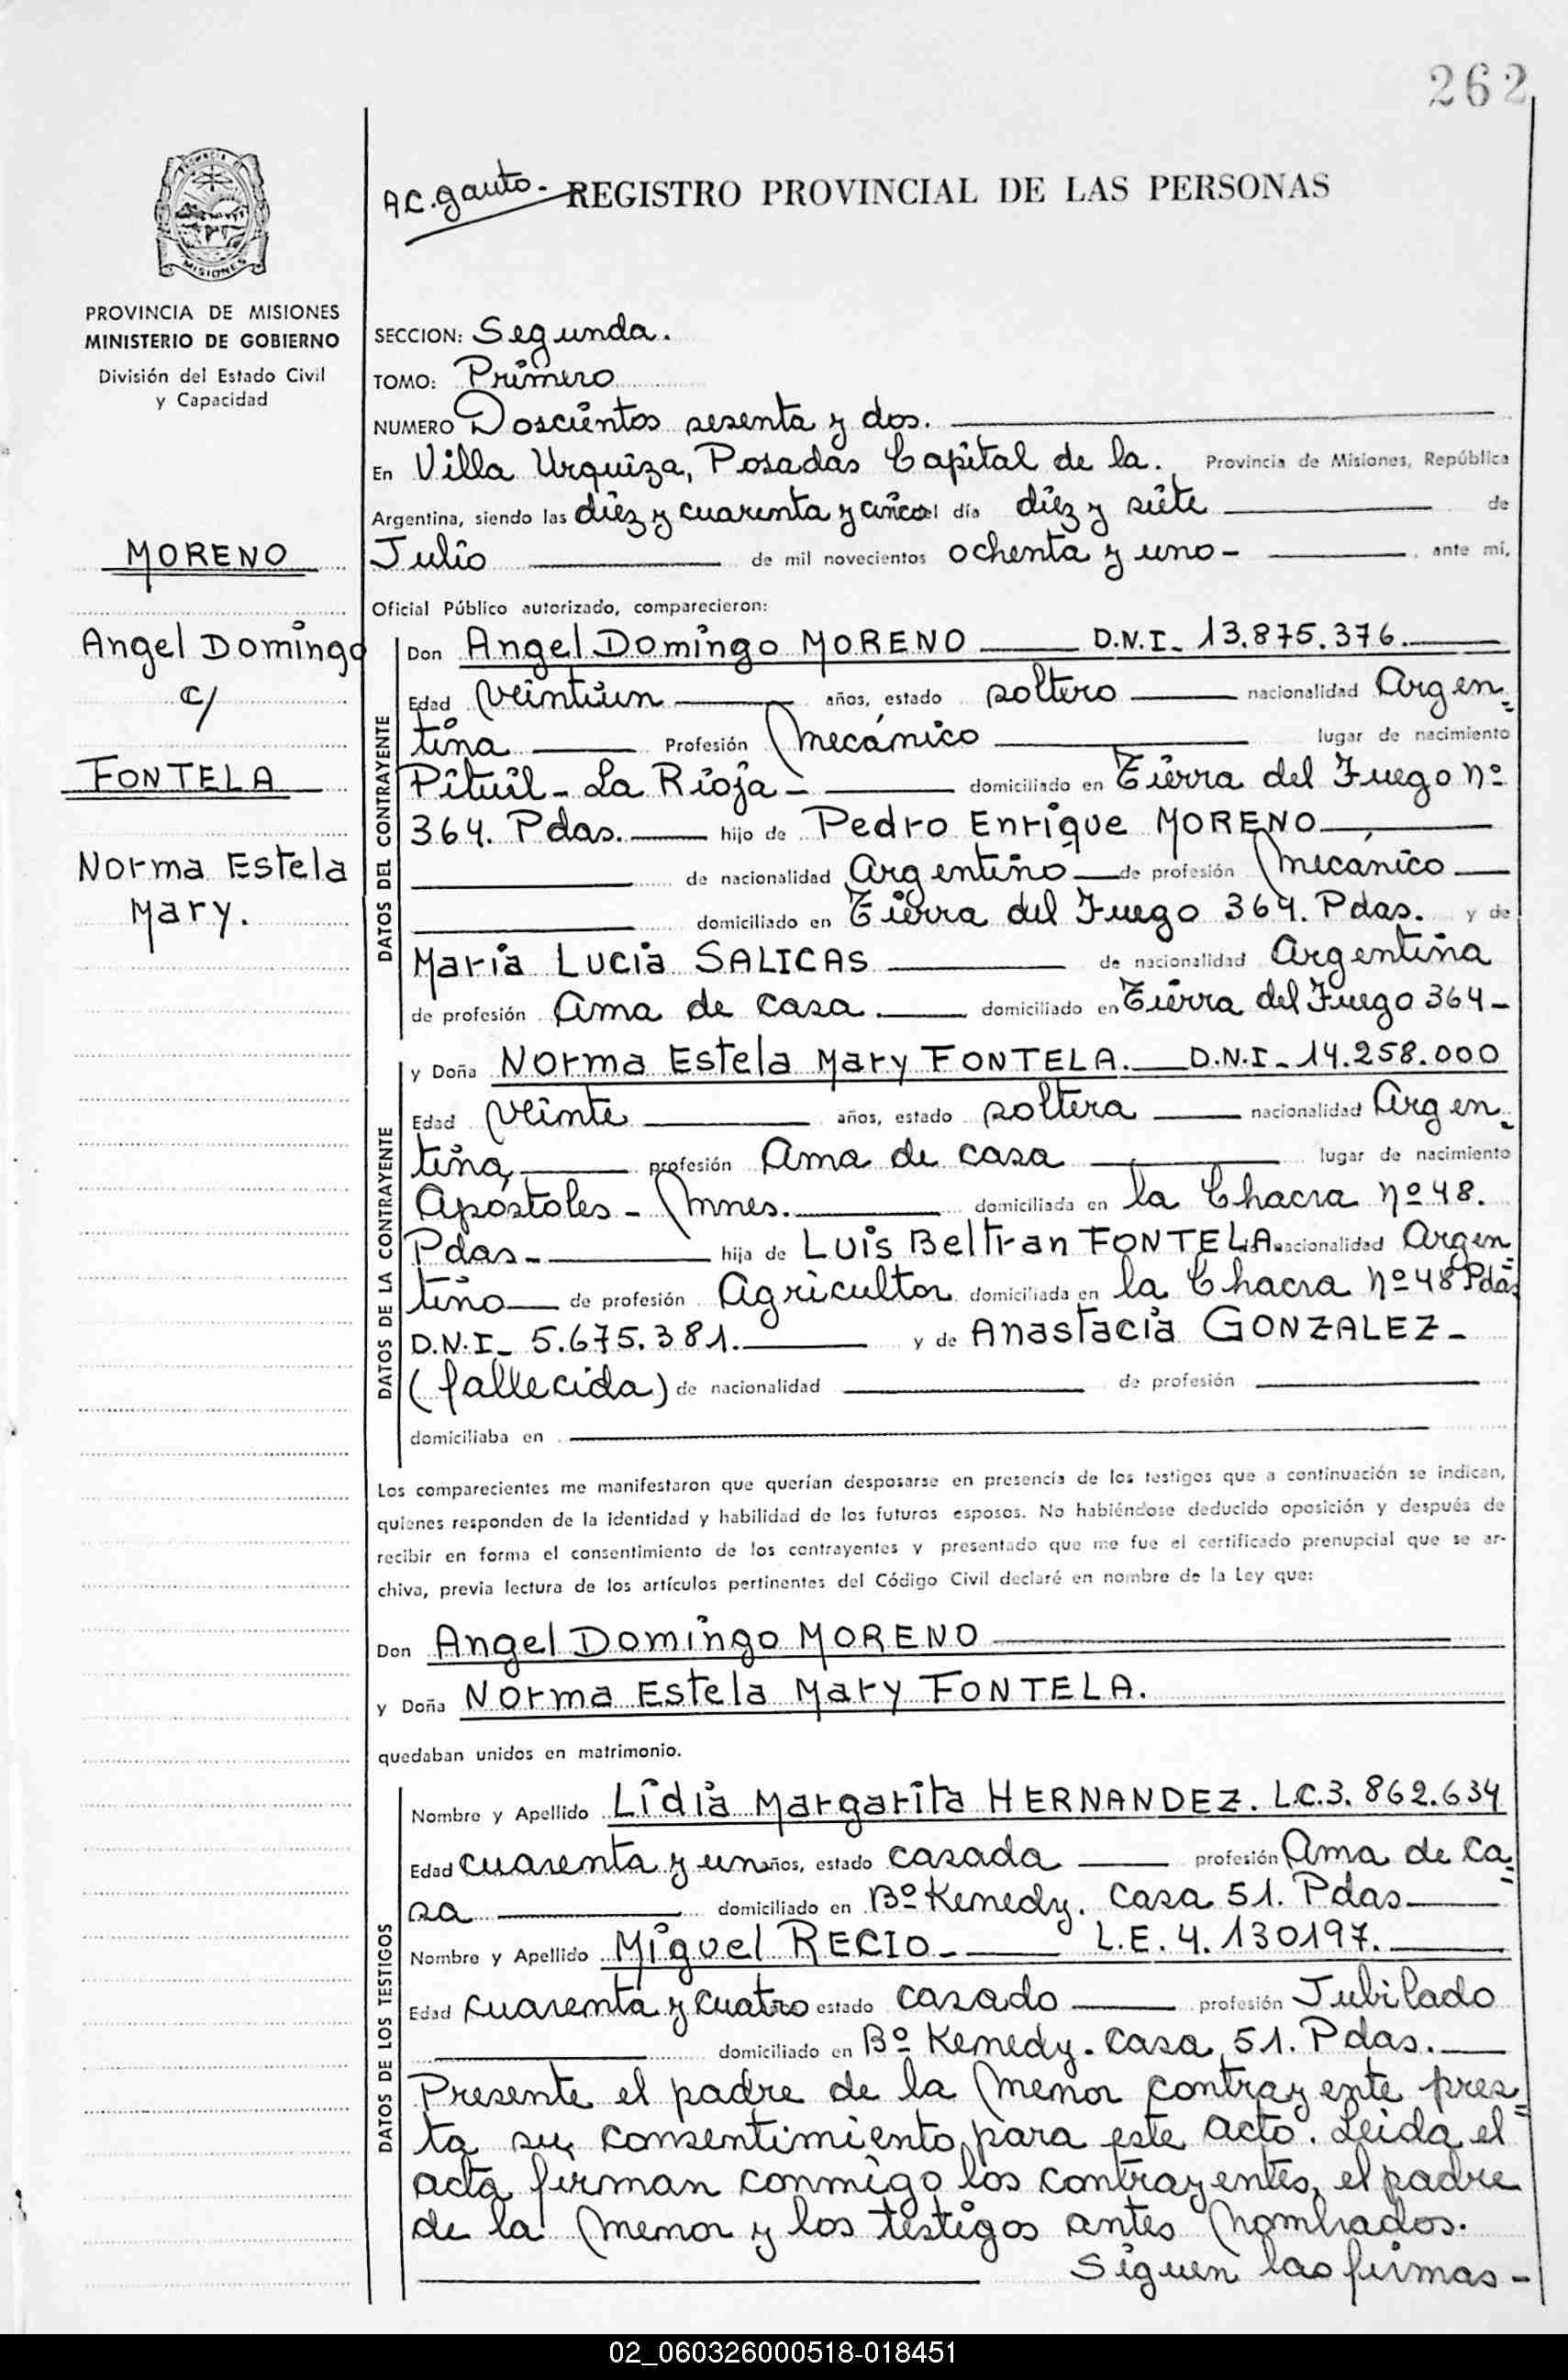 262
AC. Gauto.-
REGISTRO PROVINCIAL DE LAS PERSONAS
PROVINCIA DE MISIONES
PROVINCIA DE MISIONES
MINISTERIO DE GOBIERNO
División del Estado Civil
y Capacidad
MORENO
Angel Domingo
c/
FONTELA
Norma Estela
Mary.
SECCION: Segunda.
TOMO: Primero
NUMERO Doscientos sesenta y dos.
En Villa Urquiza, Posadas Capital de la. Provincia de Misiones, República
Argentina, siendo las diez y cuarenta y cinco el día diez y siete de
Julio de mil novecientos ochenta y uno- ante mí,
Oficial Público autorizado, comparecieron:
DATOS DEL CONTRAYENTE
Don Angel Domingo MORENO D.N.I- 13.875.376.
Edad veintiun años, estado soltero nacionalidad Argen=
tina Profesión Mecánico lugar de nacimiento
Pituil- La Rioja- domiciliado en Tierra del Fuego nº
364. Pdas. hijo de Pedro Enrique MORENO
de nacionalidad Argentino de profesión Mecánico
domiciliado en Tierra del Fuego 364. Pdas. y de
Maria Lucia SALICAS de nacionalidad Argentina
de profesión Ama de casa. domiciliado en Tierra del Fuego 364-
DATOS DE LA CONTRAYENTE
y Doña Norma Estela Mary FONTELA. D.N.I- 14.258.000
Edad veinte años, estado soltera nacionalidad Argen=
tina, profesión Ama de casa lugar de nacimiento
Apóstoles- Mnes. domiciliada en la Chacra nº 48.
Pdas- hija de Luis Beltran FONTELA nacionalidad Argen=
tino de profesión Agricultor domiciliada en la Chacra nº 48 Pdas
D.N.I- 5.675.381. y de Anastacia GONZALEZ-
(fallecida) de nacionalidad de profesión
domiciliaba en
Los comparecientes me manifestaron que querían desposarse en presencia de los testigos que a continuación se indican,
quienes responden de la identidad y habilidad de los futuros esposos. No habiéndose deducido oposición y después de
recibir en forma el consentimiento de los contrayentes y presentado que me fue el certificado prenupcial que se ar-
chiva, previa lectura de los artículos pertinentes del Código Civil declaré en nombre de la Ley que:
Don Angel Domingo MORENO
y Doña Norma Estela Mary FONTELA.
quedaban unidos en matrimonio.
DATOS DE LOS TESTIGOS
Nombre y Apellido Lidia Margarita HERNANDEZ. L.C.3.862.634
Edad cuarenta y un años, estado casada profesión Ama de ca=
sa domiciliado en Bº Kenedy. Casa 51. Pdas
Nombre y Apellido Miguel RECIO- L.E. 4.130197.
Edad cuarenta y cuatro estado casado profesión Jubilado
domiciliado en Bº Kenedy. Casa 51. Pdas.
Presente el padre de la menor contrayente pres=
ta su consentimiento para este acto. Leida el
acta firman conmigo los contrayentes, el padre
de la menor y los testigos antes nombrados.
Siguen las firmas-
02_060326000518-018451